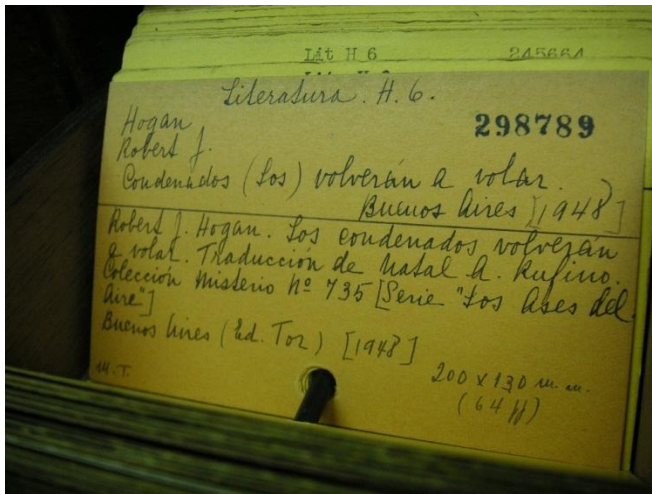 Lit H 6 245664
Literatura. H. 6.
298789
Hogan
Robert J.
Condenados (Los) volverán a volar.
Buenos Aires [1948]
Robert J. Hogan. Los condenados volverán
a volar. Traducción de Natal A. Rufino.
Colección Misterio Nº 735 [Serie "Los Ases del
Aire"]
Buenos Aires (Ed. Tor) [1948]
M.T.
200 x 130 m.m.
(64 ff)